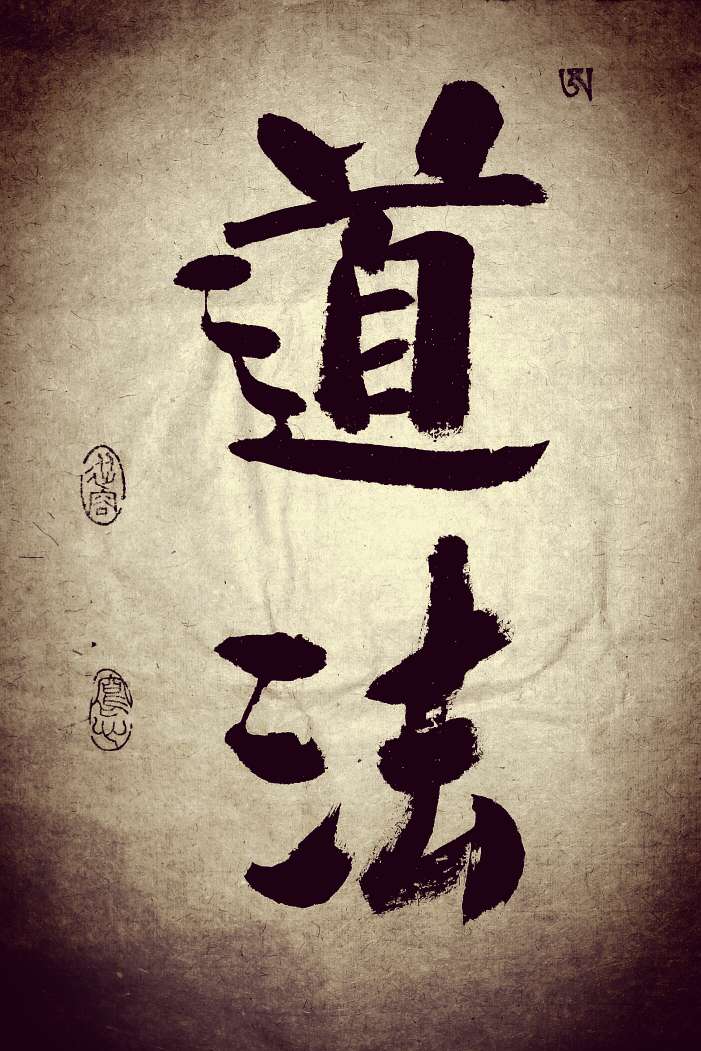 ཨ
道法